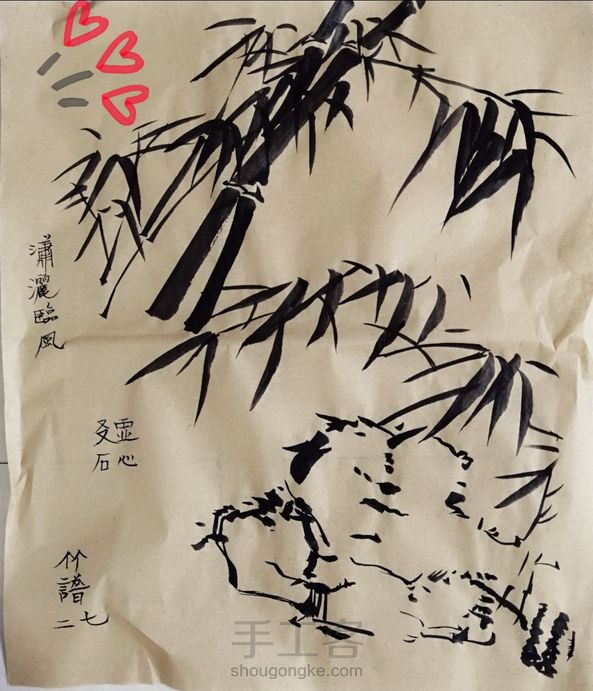 瀟灑臨風
虛心
友石
竹譜
二七
手工客
shougongke.com